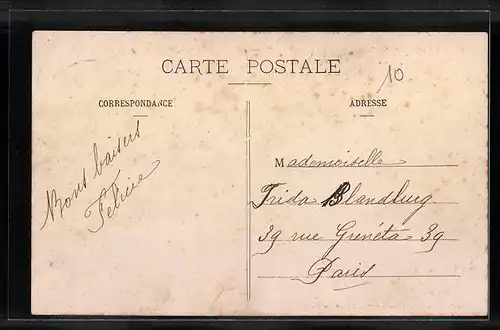 CARTE POSTALE
10
CORRESPONDANCE
ADRESSE
Bons baisers
Mademoiselle
Frida
39 rue Grenéta 39
Paris